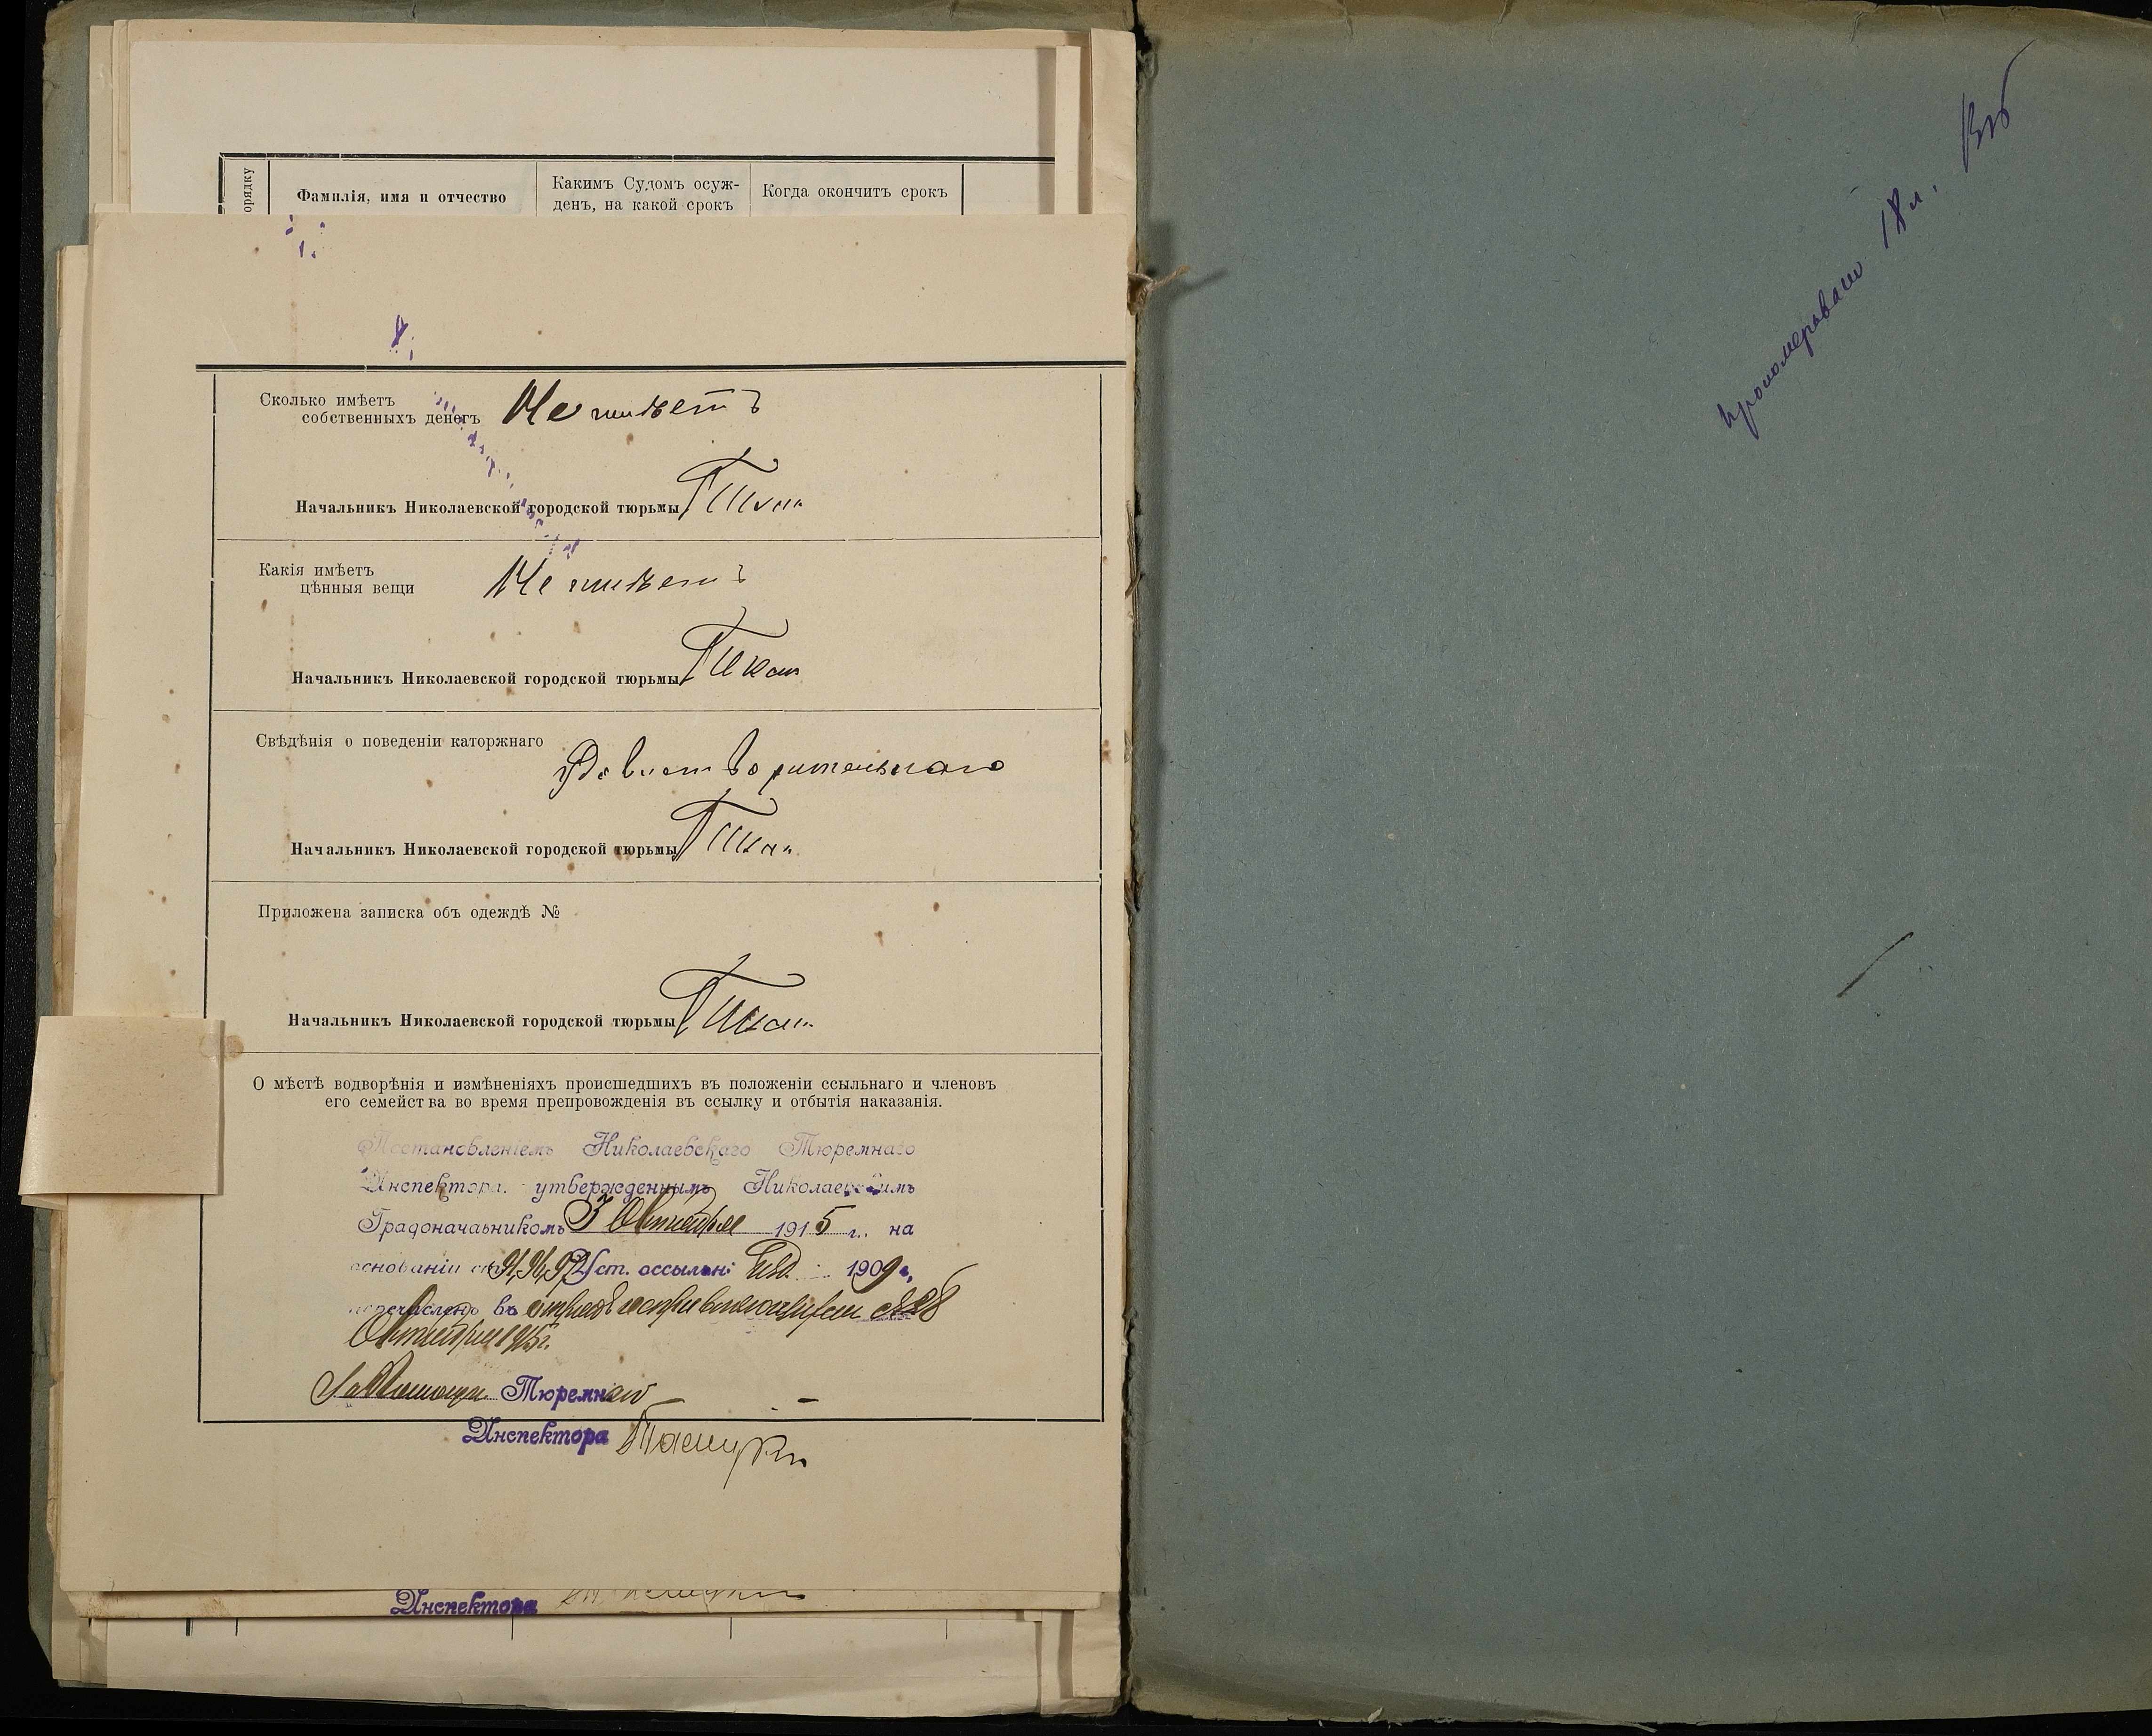 орядку
Фамилія, имя и отчество
Какимъ Судомъ осуж-
денъ, на какой срокъ
Когда окончитъ срокъ
Сколько имѣетъ
собственныхъ денегъ Не имѣетъ
Начальникъ Николаевской городской тюрьмы
Какія имѣетъ
цѣнныя вещи Не имѣетъ
Начальникъ Николаевской городской тюрьмы
Свѣдѣнія о поведеніи каторжнаго
Удовлетворительнаго
Начальникъ Николаевской городской тюрьмы
Приложена записка объ одеждѣ №
Начальникъ Николаевской городской тюрьмы
О мѣстѣ водворѣнія и измѣненіяхъ происшедшихъ въ положеніи ссыльнаго и членовъ
его семейства во время препровожденія въ ссылку и отбытія наказанія.
Постановленіемъ Николаевскаго Тюремнаго
Инспектора утвержденнымъ Николаевскимъ
Градоначаьникомъ 3 Октября 1915 г. на
основаніи ст. Уст. о ссыльн. Изд. 1909 г.
перечисленъ въ отрядъ исправляющихся съ 28
Октября 1915 г.
Тюремнаго
Инспектора
Инспектора
пронумеровано 18 л.